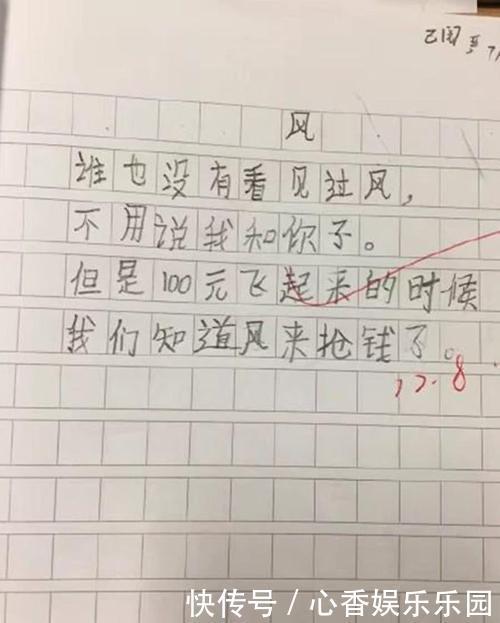 风
谁也没有看见过风,
不用说我和你了。
但是100元飞起来的时候
我们知道风来抢钱了。
12.8
快传号/心香娱乐乐园